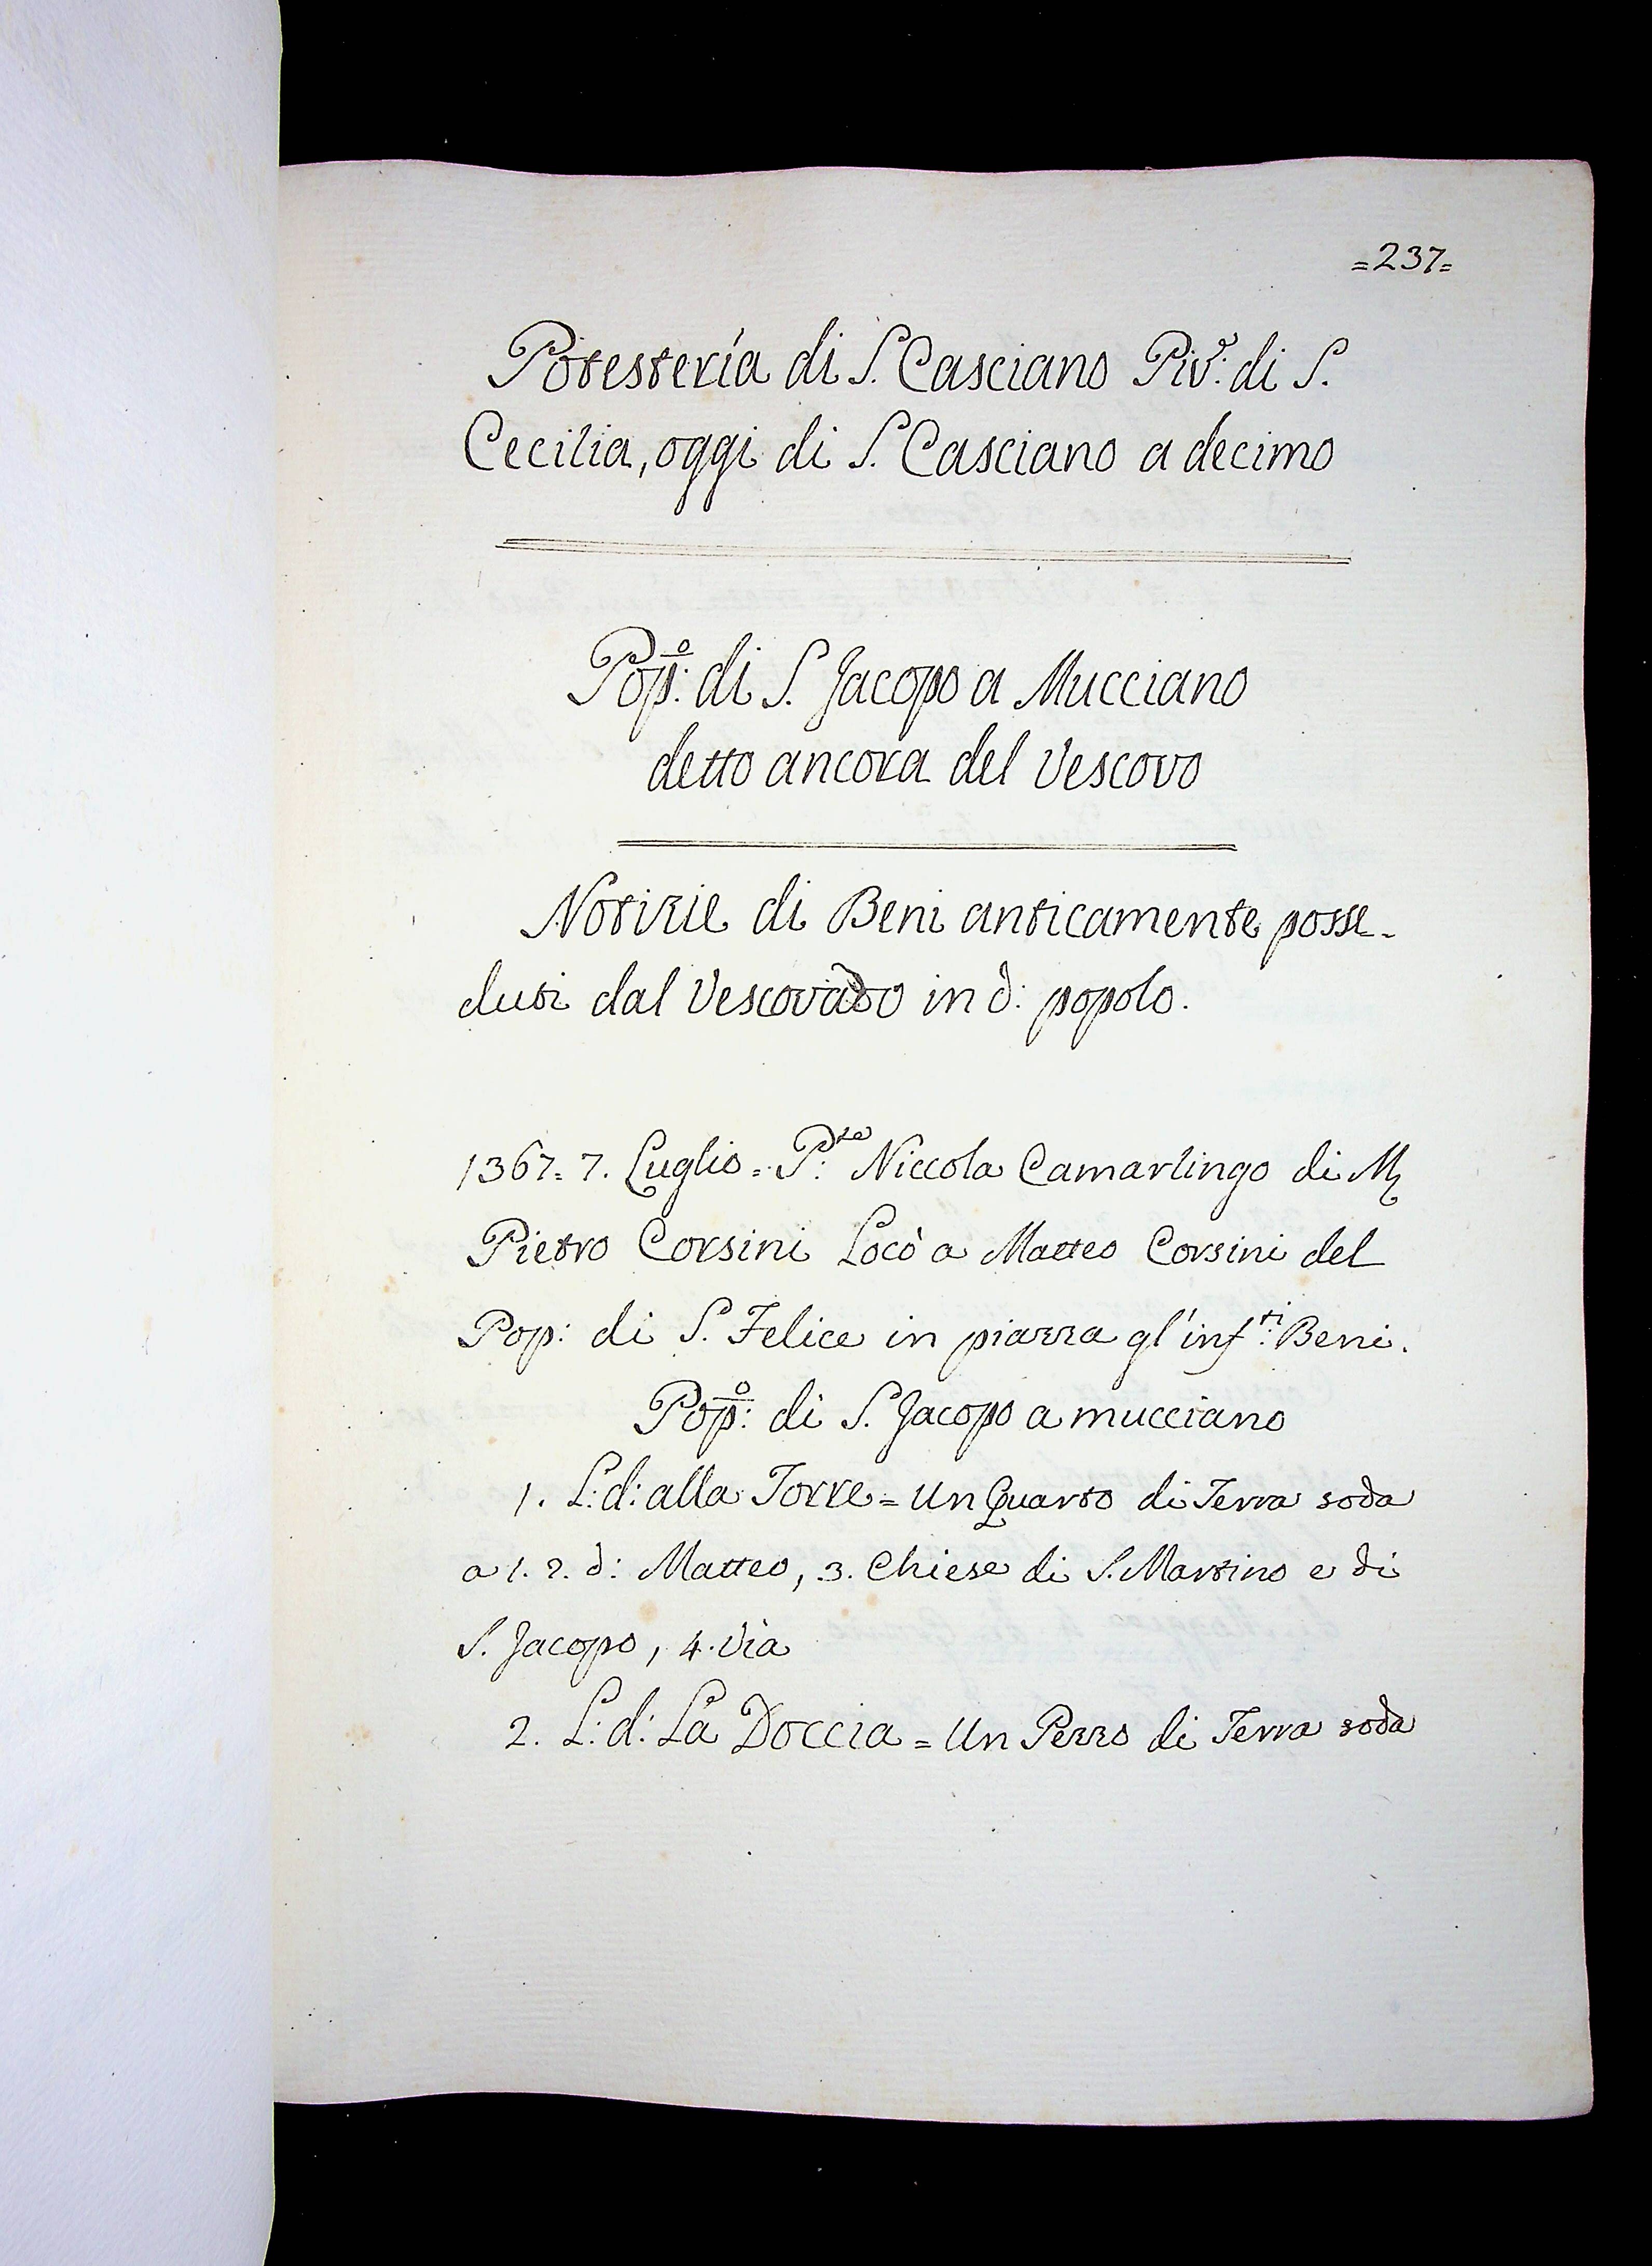 =237=
Potesteria di S. Casciano Piv.e di S.
Cecilia, oggi di S. Casciano a decimo
Pop.o: di S. Jacopo a Mucciano
detto ancora del Vescovo
Notizie di Beni anticamente posse-
duti dal Vescovado in d: popolo.
1367. 7. Luglio = P.te: Niccola Camarlingo di M
Pietro Corsini Locò a Matteo Corsini del
Pop: di S. Felice in piazza gl'inf.ti: Beni.
Pop.o: di S. Jacopo a mucciano
1. L: d: alla Torre = Un Quarto di Terra soda
a 1. 2. d: Matteo, 3. Chiese di S. Martino e di
S. Jacopo, 4. Via
2. L: d: La Doccia = Un Pezzo di Terra soda